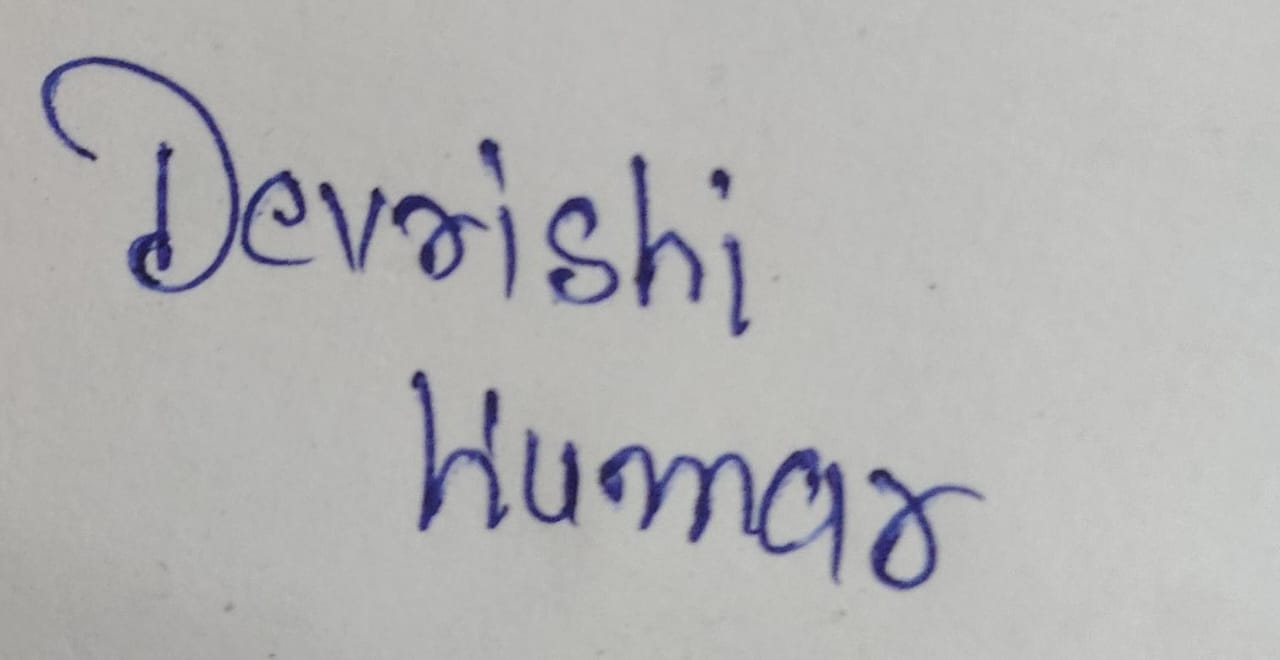 Devrishi
Kumar